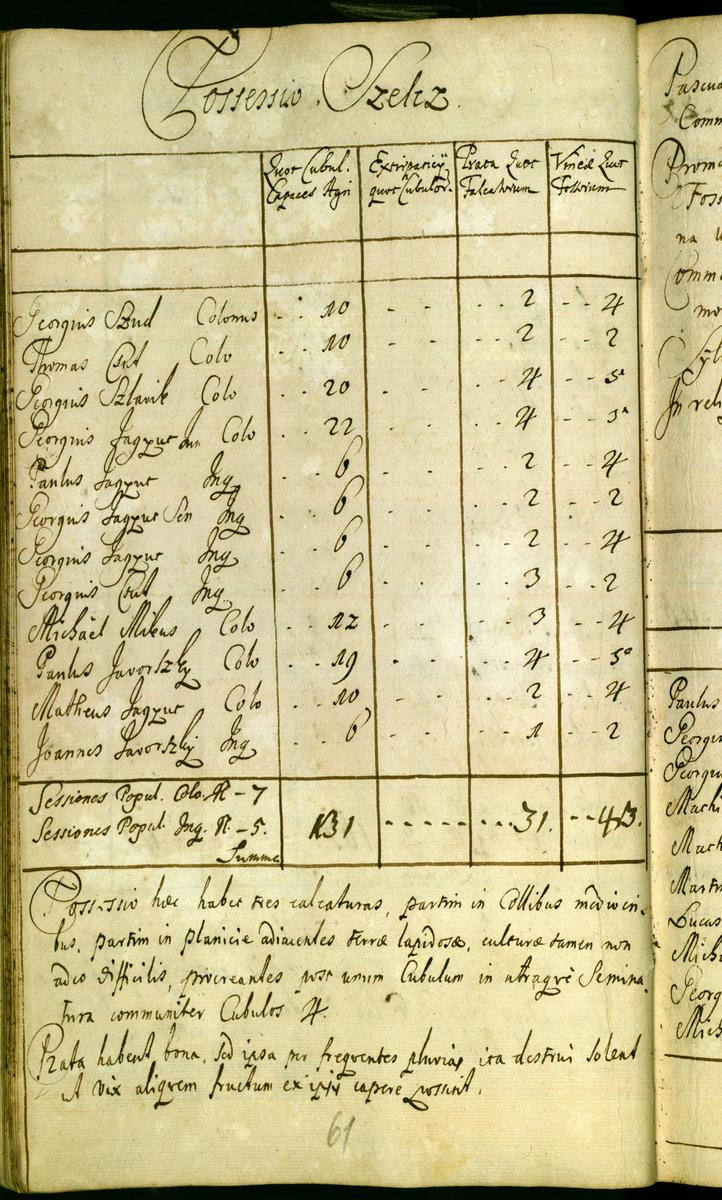 Possessio Szelcz.
Quot Cubul. Capaces Agri
Extirpaticÿ quot Cubulor.
Prata Quot Falcatorum
Vineæ Quot Fossorum
Georgius Szud Colonus . . 10 - - . . 2 - - 4
Thomas Colo . . 10 - - . . 2 - - 2
Georgius Szlavik Colo . . 20 - - . . 4 - - 5
Georgius Jagpuc Jun Colo . . 22 - - . . 4 - - 5
Paulus Jagpuc Inq . . 6 - - . . 2 - - 4
Georgius Jagpuc Sen Inq . . 6 - - . . 2 - - 2
Georgius Jagpuc Inq . . 6 - - . . 2 - - 4
Georgius Inq . . 6 - - . . 3 - - 2
Michäel Mikus Colo . . 12 - - . . 3 - - 4
Paulus Javorszky Colo . . 19 - - . . 4 - - 5
Matheus Jagpuc Colo . . 10 - - . . 2 - - 4
Joannes Javorszky Inq . . 6 - - . . 1 - - 2
Sessiones Popul. Colo. N - 7
Sessiones Popul. Inq. N. - 5.
Summa 131 - - - - - - . . . 31. - - 43.
Possessio hæc habet tres calcaturas, partim in Collibus mediocri-
bus, partim in planicie adiacentes terræ lapidosæ, culturæ tamen non
adeo difficilis, procreantes post unum Cubulum in utraqvè Semina-
tura communiter Cubulos 4.
Prata habent bona, sed ipsa per freqventes pluvias ita destrui solent
ut vix aliqvem fructum ex ipsis capere possint.
61
Pascua
Comm
Promo
Foss
na
Comm
mo
Sylv
In reli
Paulus
Georgiu
Georgiu
Machi
Mach
Martin
Lucas
Micha
Georg
Mich